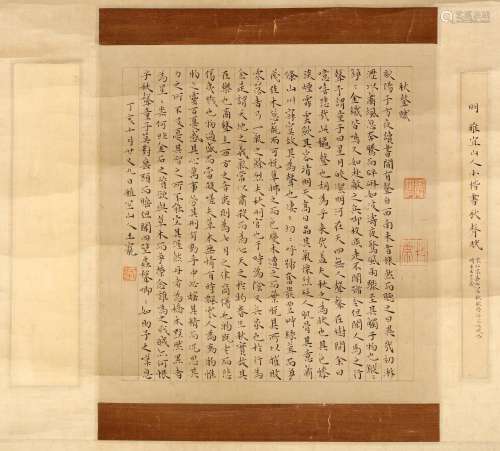 明 雅宜山人小楷書秋聲賦
秋聲賦
歐陽子方夜讀書聞有聲自西南來者悚然而聽之曰異哉初淅
瀝以蕭颯忽奔騰而砰湃如波濤夜驚風雨驟至其觸于物也鏦
錚金鐵皆鳴又如赴敵之兵銜枚疾走不聞號令但聞人馬之行
聲予謂童子曰星月皎潔明河在天四無人聲聲在樹間余曰
噫嘻悲哉此秋聲也胡為乎來哉蓋夫秋之為狀也其色慘
淡煙霏雲斂其容清明天高日晶其氣慄冽砭人肌骨其意蕭
條山川寂寥故其為聲也淒切呼號奮發豐草綠縟而爭
茂佳木蔥蘢而可悅草拂之而色變木遭之而葉脫其所以摧敗
零落者乃一氣之餘烈夫秋刑官也于時為陰又兵象也於行為
金是謂天地之義氣常以肅殺而為心天之於物春生秋實故其
在樂也商聲主西方之音夷則為七月之律商傷也物既老而悲
傷夷戮也物過盛而當殺嗟夫草木無情有時飄零人為動物惟
物之靈百憂感其心萬事勞其形有動乎中必搖其精而況思其
力之所不及憂其智之所不能宜其渥然丹者為槁木黟然黑者
為星星奈何非金石之質欲與草木而爭榮念誰為之戕賊亦何恨
乎秋聲童子莫對垂頭而睡但聞四壁蟲聲唧唧如助予之歎息
丁亥七月廿又九日雅宜山人王寵